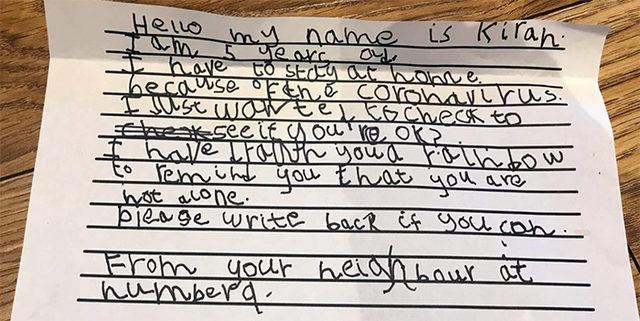 Hello my name is Kiran.
I am 5 years old
I have to stay at home.
because of the coronavirus.
I Just wanted to check to
see if you're ok?
I have you a rainbow
to remind you that you are
not alone.
please write back if you can.
From your neighbour at
number 9.